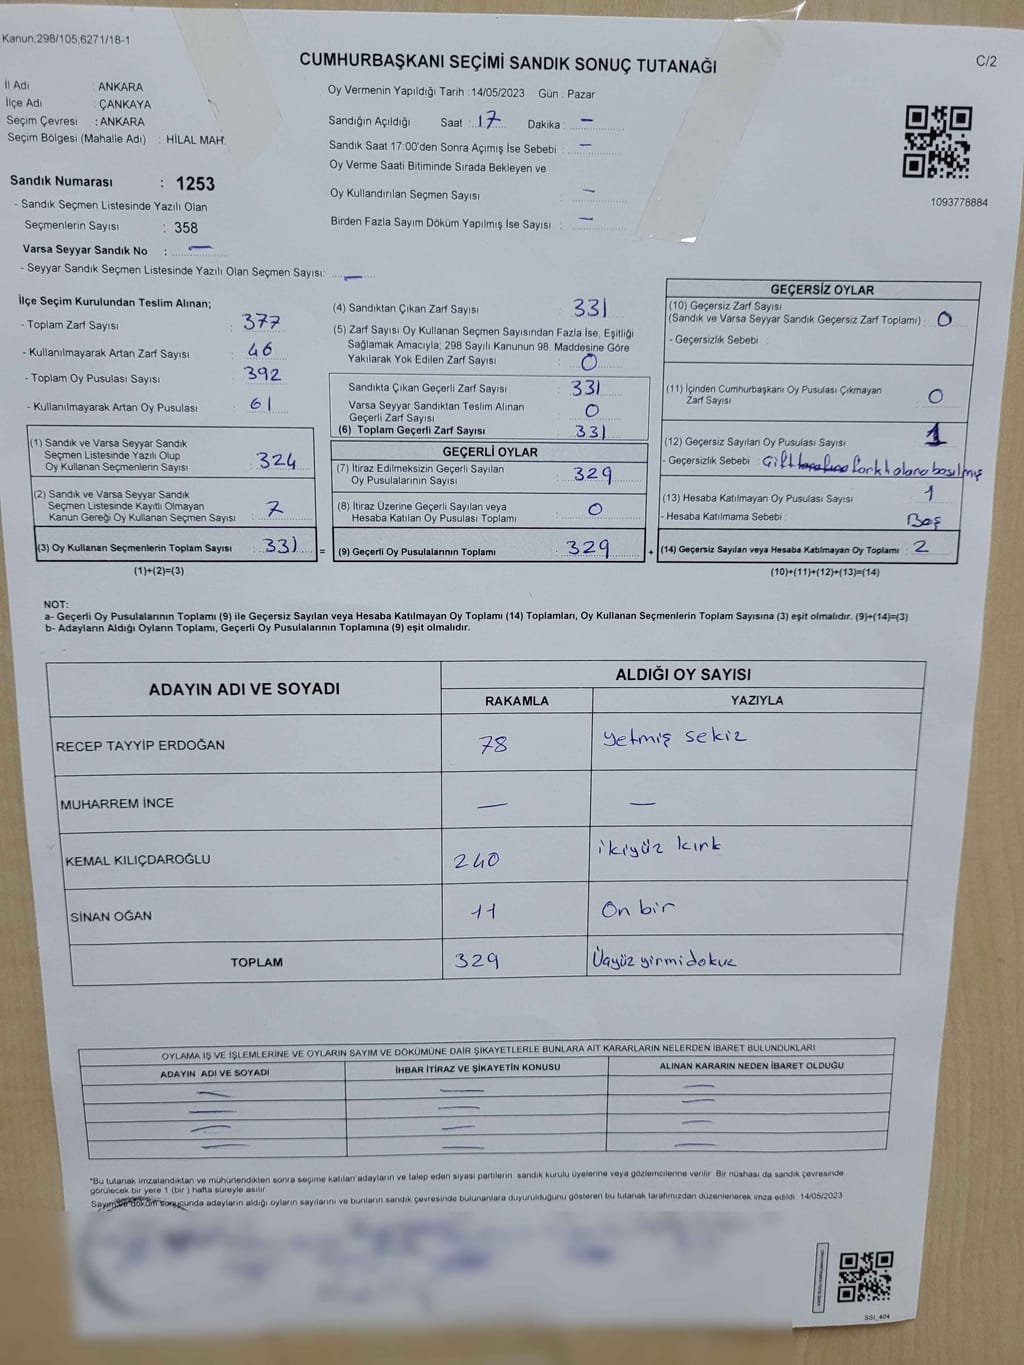 Kanun:298/105,6271/18-1
CUMHURBAŞKANI SEÇİMİ SANDIK SONUÇ TUTANAĞI
C/2
İl Adı : ANKARA
İlçe Adı : ÇANKAYA
Seçim Çevresi : ANKARA
Seçim Bölgesi (Mahalle Adı) : HİLAL MAH.
Oy Vermenin Yapıldığı Tarih :14/05/2023 Gün : Pazar
Sandığın Açıldığı Saat : 17 Dakika : —
Sandık Saat 17:00'den Sonra Açımış İse Sebebi : —
Oy Verme Saati Bitiminde Sırada Bekleyen ve
Oy Kullandırılan Seçmen Sayısı : —
Birden Fazla Sayım Döküm Yapılmış İse Sayısı : —
1093778884
Sandık Numarası : 1253
- Sandık Seçmen Listesinde Yazılı Olan
Seçmenlerin Sayısı : 358
Varsa Seyyar Sandık No : —
- Seyyar Sandık Seçmen Listesinde Yazılı Olan Seçmen Sayısı: —
İlçe Seçim Kurulundan Teslim Alınan;
- Toplam Zarf Sayısı : 377
- Kullanılmayarak Artan Zarf Sayısı : 46
- Toplam Oy Pusulası Sayısı : 392
- Kullanılmayarak Artan Oy Pusulası : 61
(1) Sandık ve Varsa Seyyar Sandık
Seçmen Listesinde Yazılı Olup
Oy Kullanan Seçmenlerin Sayısı : 324
(2) Sandık ve Varsa Seyyar Sandık
Seçmen Listesinde Kayıtlı Olmayan
Kanun Gereği Oy Kullanan Seçmen Sayısı : 7
(3) Oy Kullanan Seçmenlerin Toplam Sayısı : 331 =
(1)+(2)=(3)
(4) Sandıktan Çıkan Zarf Sayısı : 331
(5) Zarf Sayısı Oy Kullanan Seçmen Sayısından Fazla İse, Eşitliği
Sağlamak Amacıyla; 298 Sayılı Kanunun 98. Maddesine Göre
Yakılarak Yok Edilen Zarf Sayısı : 0
Sandıkta Çıkan Geçerli Zarf Sayısı : 331
Varsa Seyyar Sandıktan Teslim Alınan
Geçerli Zarf Sayısı : 0
(6) Toplam Geçerli Zarf Sayısı : 331
GEÇERLİ OYLAR
(7) İtiraz Edilmeksizin Geçerli Sayılan
Oy Pusulalarının Sayısı : 329
(8) İtiraz Üzerine Geçerli Sayılan veya
Hesaba Katılan Oy Pusulası Toplamı : 0
(9) Geçerli Oy Pusulalarının Toplamı : 329 +
GEÇERSİZ OYLAR
(10) Geçersiz Zarf Sayısı
(Sandık ve Varsa Seyyar Sandık Geçersiz Zarf Toplamı) : 0
- Geçersizlik Sebebi :
(11) İçinden Cumhurbaşkanı Oy Pusulası Çıkmayan
Zarf Sayısı : 0
(12) Geçersiz Sayılan Oy Pusulası Sayısı : 1
- Geçersizlik Sebebi : Çift basılmış
(13) Hesaba Katılmayan Oy Pusulası Sayısı : 1
- Hesaba Katılmama Sebebi : Boş
(14) Geçersiz Sayılan veya Hesaba Katılmayan Oy Toplamı : 2
(10)+(11)+(12)+(13)=(14)
NOT:
a- Geçerli Oy Pusulalarının Toplamı (9) ile Geçersiz Sayılan veya Hesaba Katılmayan Oy Toplamı (14) Toplamları, Oy Kullanan Seçmenlerin Toplam Sayısına (3) eşit olmalıdır. (9)+(14)=(3)
b- Adayların Aldığı Oyların Toplamı, Geçerli Oy Pusulalarının Toplamına (9) eşit olmalıdır.
ADAYIN ADI VE SOYADI
ALDIĞI OY SAYISI
RAKAMLA YAZIYLA
RECEP TAYYİP ERDOĞAN 78 yetmiş sekiz
MUHARREM İNCE — —
KEMAL KILIÇDAROĞLU 240 ikiyüz kırk
SİNAN OĞAN 11 On bir
TOPLAM 329 Üçyüz yirmidokuz
OYLAMA İŞ VE İŞLEMLERİNE VE OYLARIN SAYIM VE DÖKÜMÜNE DAİR ŞİKAYETLERLE BUNLARA AİT KARARLARIN NELERDEN İBARET BULUNDUKLARI
ADAYIN ADI VE SOYADI İHBAR İTİRAZ VE ŞİKAYETİN KONUSU ALINAN KARARIN NEDEN İBARET OLDUĞU
— — —
— — —
— — —
— — —
*Bu tutanak imzalandıktan ve mühürlendikten sonra seçime katılan adayların ve talep eden siyasi partilerin sandık kurulu üyelerine veya gözlemcilerine verilir. Bir nüshası da sandık çevresinde
görülecek bir yere 1 (bir ) hafta süreyle asılır.
Sayım ve döküm sonucunda adayların aldığı oyların sayılarını ve bunların sandık çevresinde bulunanlara duyurulduğunu gösteren bu tutanak tarafımızdan düzenlenerek imza edildi. 14/05/2023
SSI_404